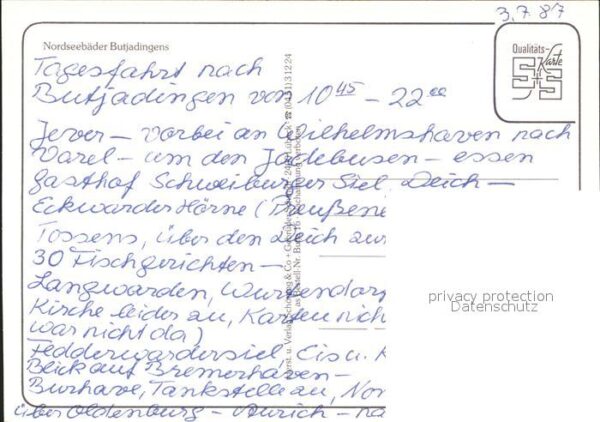 3.7.87
Nordseebäder Butjadingens
Qualitäts-
Karte
S+S
Tagesfahrt nach
Butjadingen von 10 45 – 22 00
Jever – vorbei an Wilhelmshaven nach
Varel – um den Jadebusen – essen
Gasthof Schweiburger Siel, Deich –
Eckwarder Hörne (Preußene
Tossens, über den Deich zur
30 Fischgerichten –
Langwarden, Wurtendorf
Kirche leider au, Karten nich
war nicht da)
Fedderwardersiel Eis u. K
Blick auf Bremerhaven –
Burhave, Tankstelle au, Nor
über Oldenburg – Aurich – na
privacy protection
Datenschutz